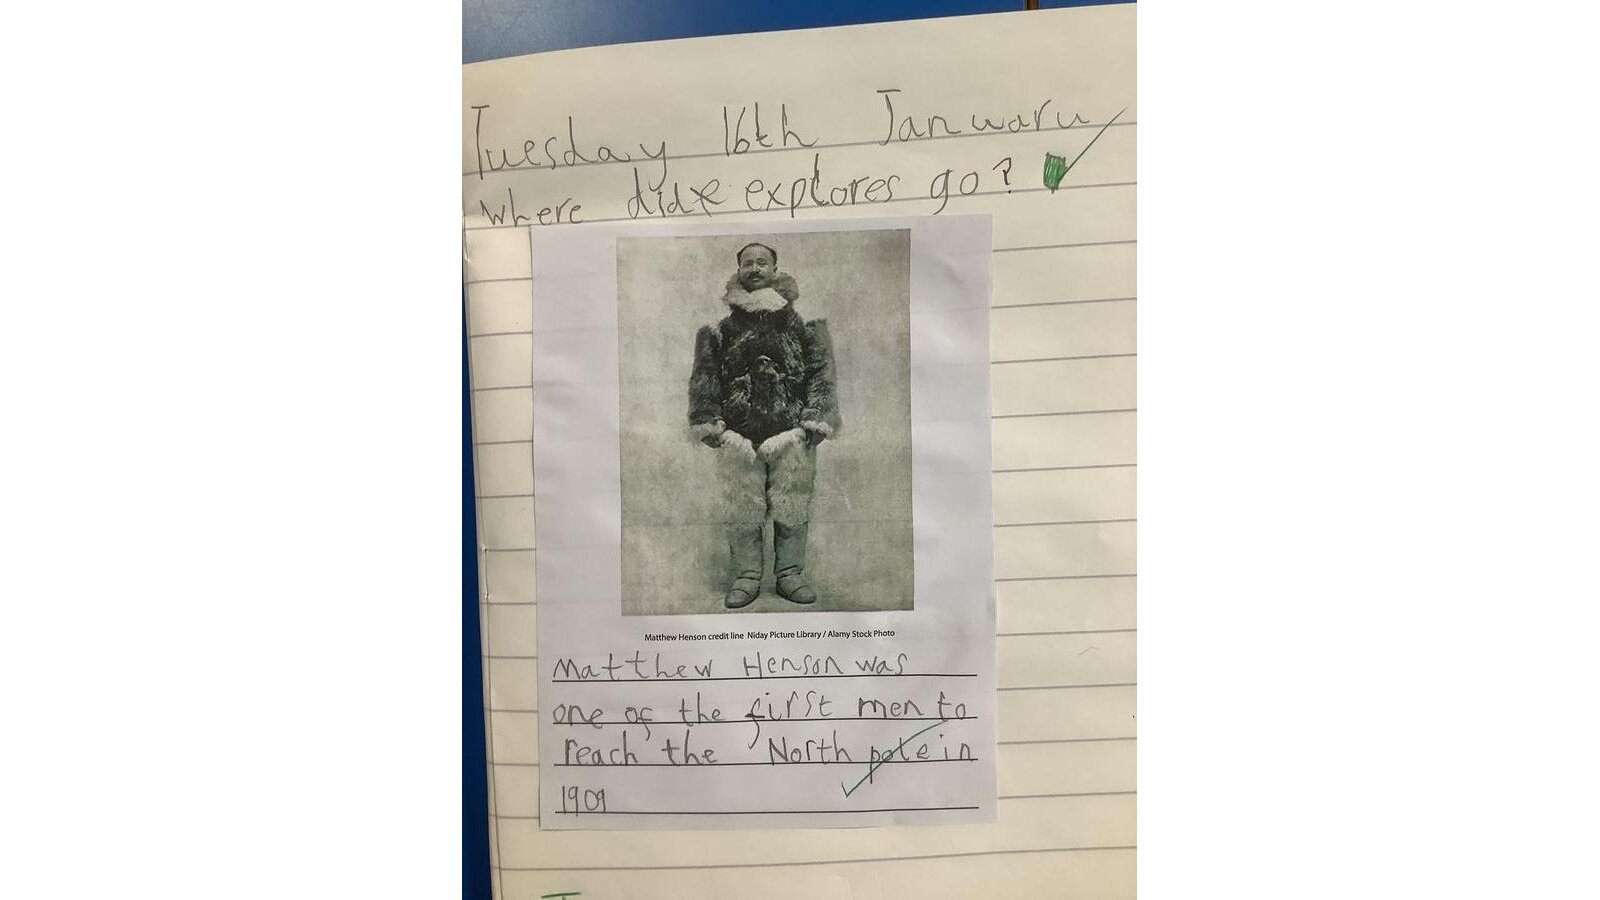 Tuesday 16th Januaru
where did explores go?
Matthew Henson credit line Niday Picture Library / Alamy Stock Photo
Matthew Henson was
one of the first men to
reach the North pole in
1909